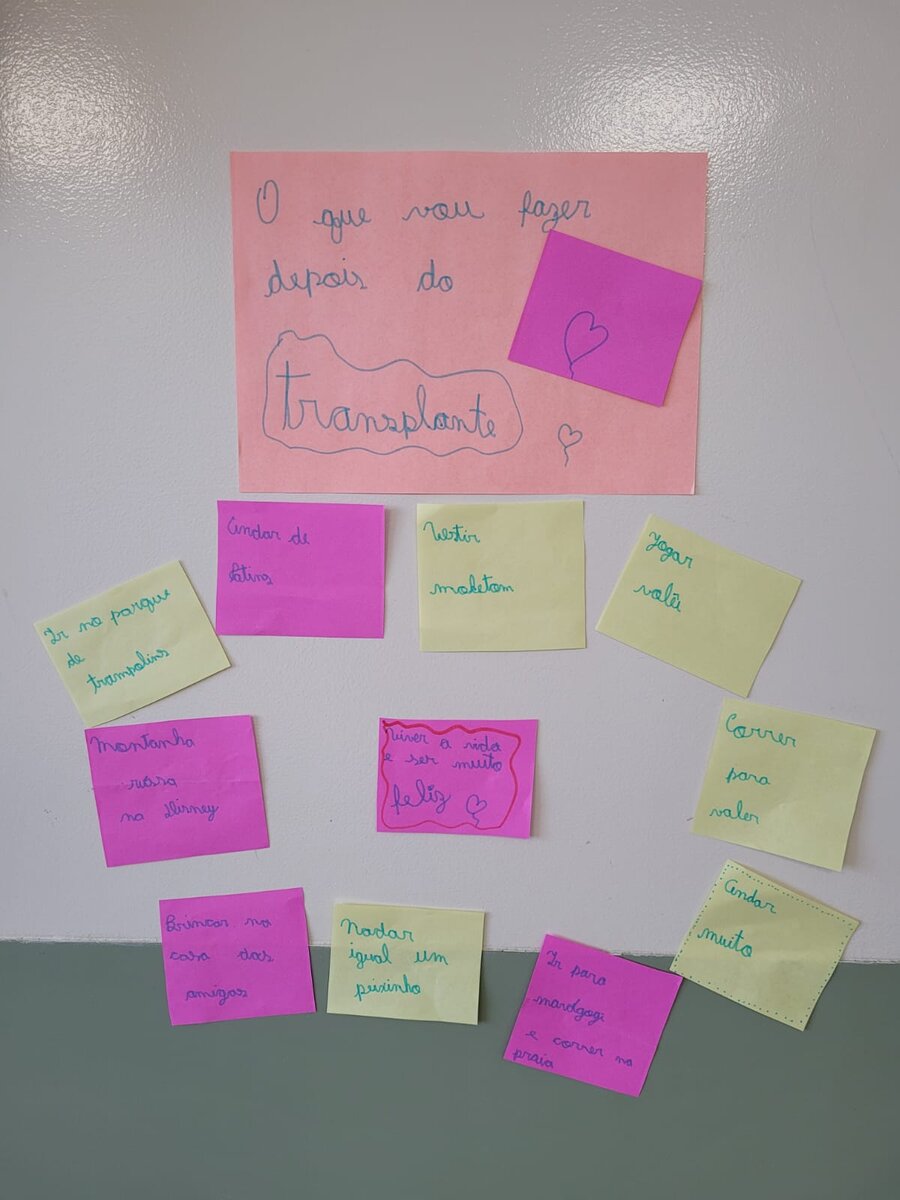 O que vou fazer
depois do
transplante
Andar de
Patins
Vestir
moletom
Jogar
volêi
Ir no parque
de
trampolins
Montanha
russa
na Disney
Viver a vida
e ser muito
feliz
Correr
para
valer
Andar
muito
Brincar na
casa das
amigas
Nadar
igual um
peixinho
Ir para
maragogi
e correr na
praia